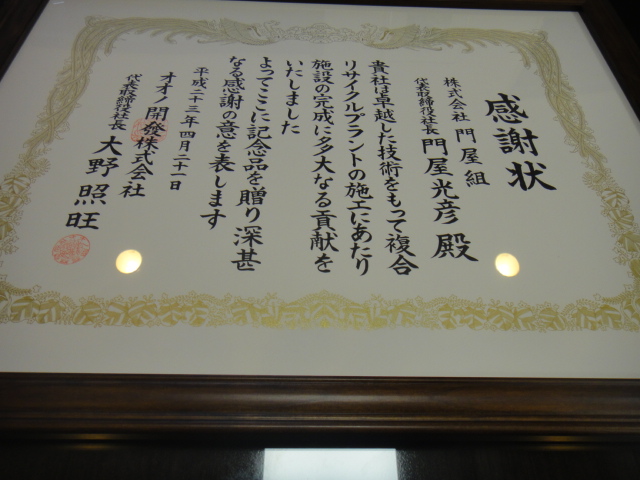 感謝状
株式会社 門屋組
代表取締役社長 門屋光彦 殿
貴社は卓越した技術をもって複合
リサイクルプラントの施工にあたり
施設の完成に多大なる貢献を
いたしました
よってここに記念品を贈り深甚
なる感謝の意を表します
平成二十三年四月二十一日
オオノ開發株式会社
代表取締役社長 大野照旺